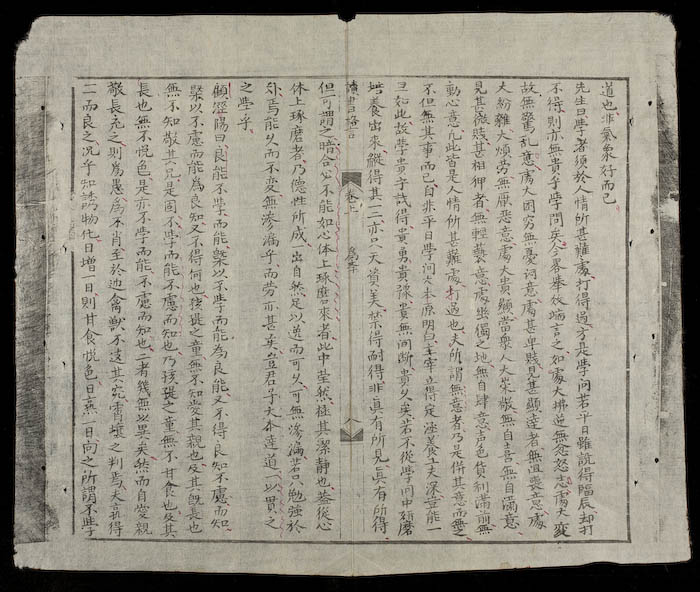 道也非氣象好而已
先生曰學者須於人情所甚難處打得過方是學問若平日雖說得臨辰却打
不得則亦無貴乎學問矣今畧舉數端言之如處大拂逆無忿怒意處大變
故無驚乱意處大困穷無憂讶意處甚卑賤見甚顯達者無沮喪意處
大紛雜大煩劳無厭惡意處大貴顯當與人大崇敬無自喜無自滿意
見甚微賤甚相狎者無輕褻意處幽獨之地無自肆意声色貨利滿前無
動心意凡此皆是人情所甚難處打過也夫所謂無意者乃是併其意而無之
不但無其事而已自非平日學问大本原明白主宰立得定涵養工夫深豈能一
旦如此故學貴乎識得貴勇貴豫貴無间断貴久矣若不從學问中研磨
培養出來縱得其一二亦只天資美禁得耐得非真有所見真有所得
讀書路言 卷上 為學 八
但可謂之暗合必不能如心体上琢磨來者此中瑩然極其潔静也蓋從心
体上琢磨者乃德性所成出自然足以達而可久可無滲漏若只勉强於
外焉能久而不变無滲漏乎而劳亦甚矣豈君子大本達道一以貫之
之學乎
顧涇陽曰良能不學而能槩以不学而能為良能又不得良知不慮而知
槩以不慮而能為良知又不得何也孩提之童無不知爱其親也及其旣長也
無不知敬其兄是固不學而能不慮而知也乃孩提之童無不甘食也及其
長也無不悦色是亦不学而能不慮而知也二者幾無以異矣然而自爱親
敬長充之則為愚為不肖至於近禽獸不遠其究霄壤之判焉夫孰得
二而良之况乎知誘物化日增一日則甘食悦色日熹一日向之所謂不学